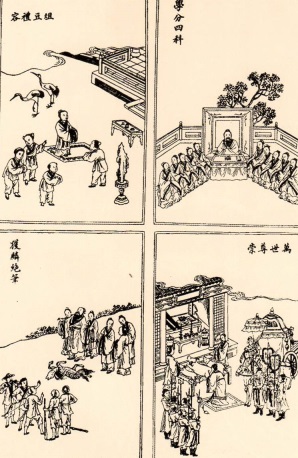 俎豆禮容
學分四科
獲麟絶筆
萬世尊崇